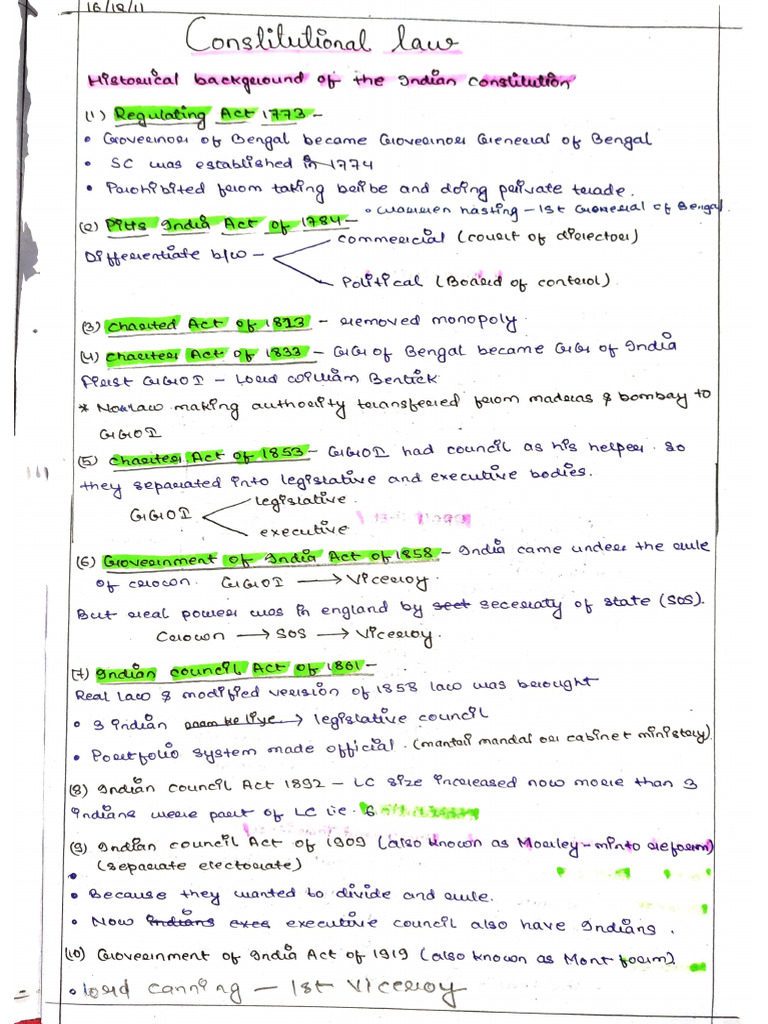 16/12/11
Constitutional law
Historical background of the Indian constitution
(1) Regulating Act 1773 -
• Governor of Bengal became Governor General of Bengal
• SC was established in 1774
• Prohibited from taking bribe and doing private trade.
• Warren hasting - 1st General of Bengal.
(2) Pitts India Act of 1784 -
Differentiate b/w -
commercial (court of directors)
Political (Board of control)
(3) Charted Act of 1813 - removed monopoly
(4) Charter Act of 1833 - GG of Bengal became GG of India
First GGOI - Lord William Bentick
* Now law making authority transferred from madras & bombay to
GGOI
(5) Charter Act of 1853 - GGOI had council as his helper. so
they separated into legislative and executive bodies.
GGOI
legislative.
executive
(6) Government of India Act of 1858 - India came under the rule
of crown. GGOI → Viceroy.
But real power was in england by secretary of state (SOS).
Crown → SOS → Viceroy.
(7) Indian council Act of 1861 -
Real law & modified version of 1858 law was brought
• 3 indian → legislative council
• Portfolio system made official. (mantri mandal or cabinet ministry)
(8) Indian council Act 1892 - LC size increased now more than 3
indians were part of LC i.e. 6
(9) Indian council Act of 1909 (also known as Morley-minto reform)
(separate electorate)
• Because they wanted to divide and rule.
• Now indians exec executive council also have Indians.
(10) Government of India Act of 1919 (also known as Mont form)
• lord canning - 1st Viceroy